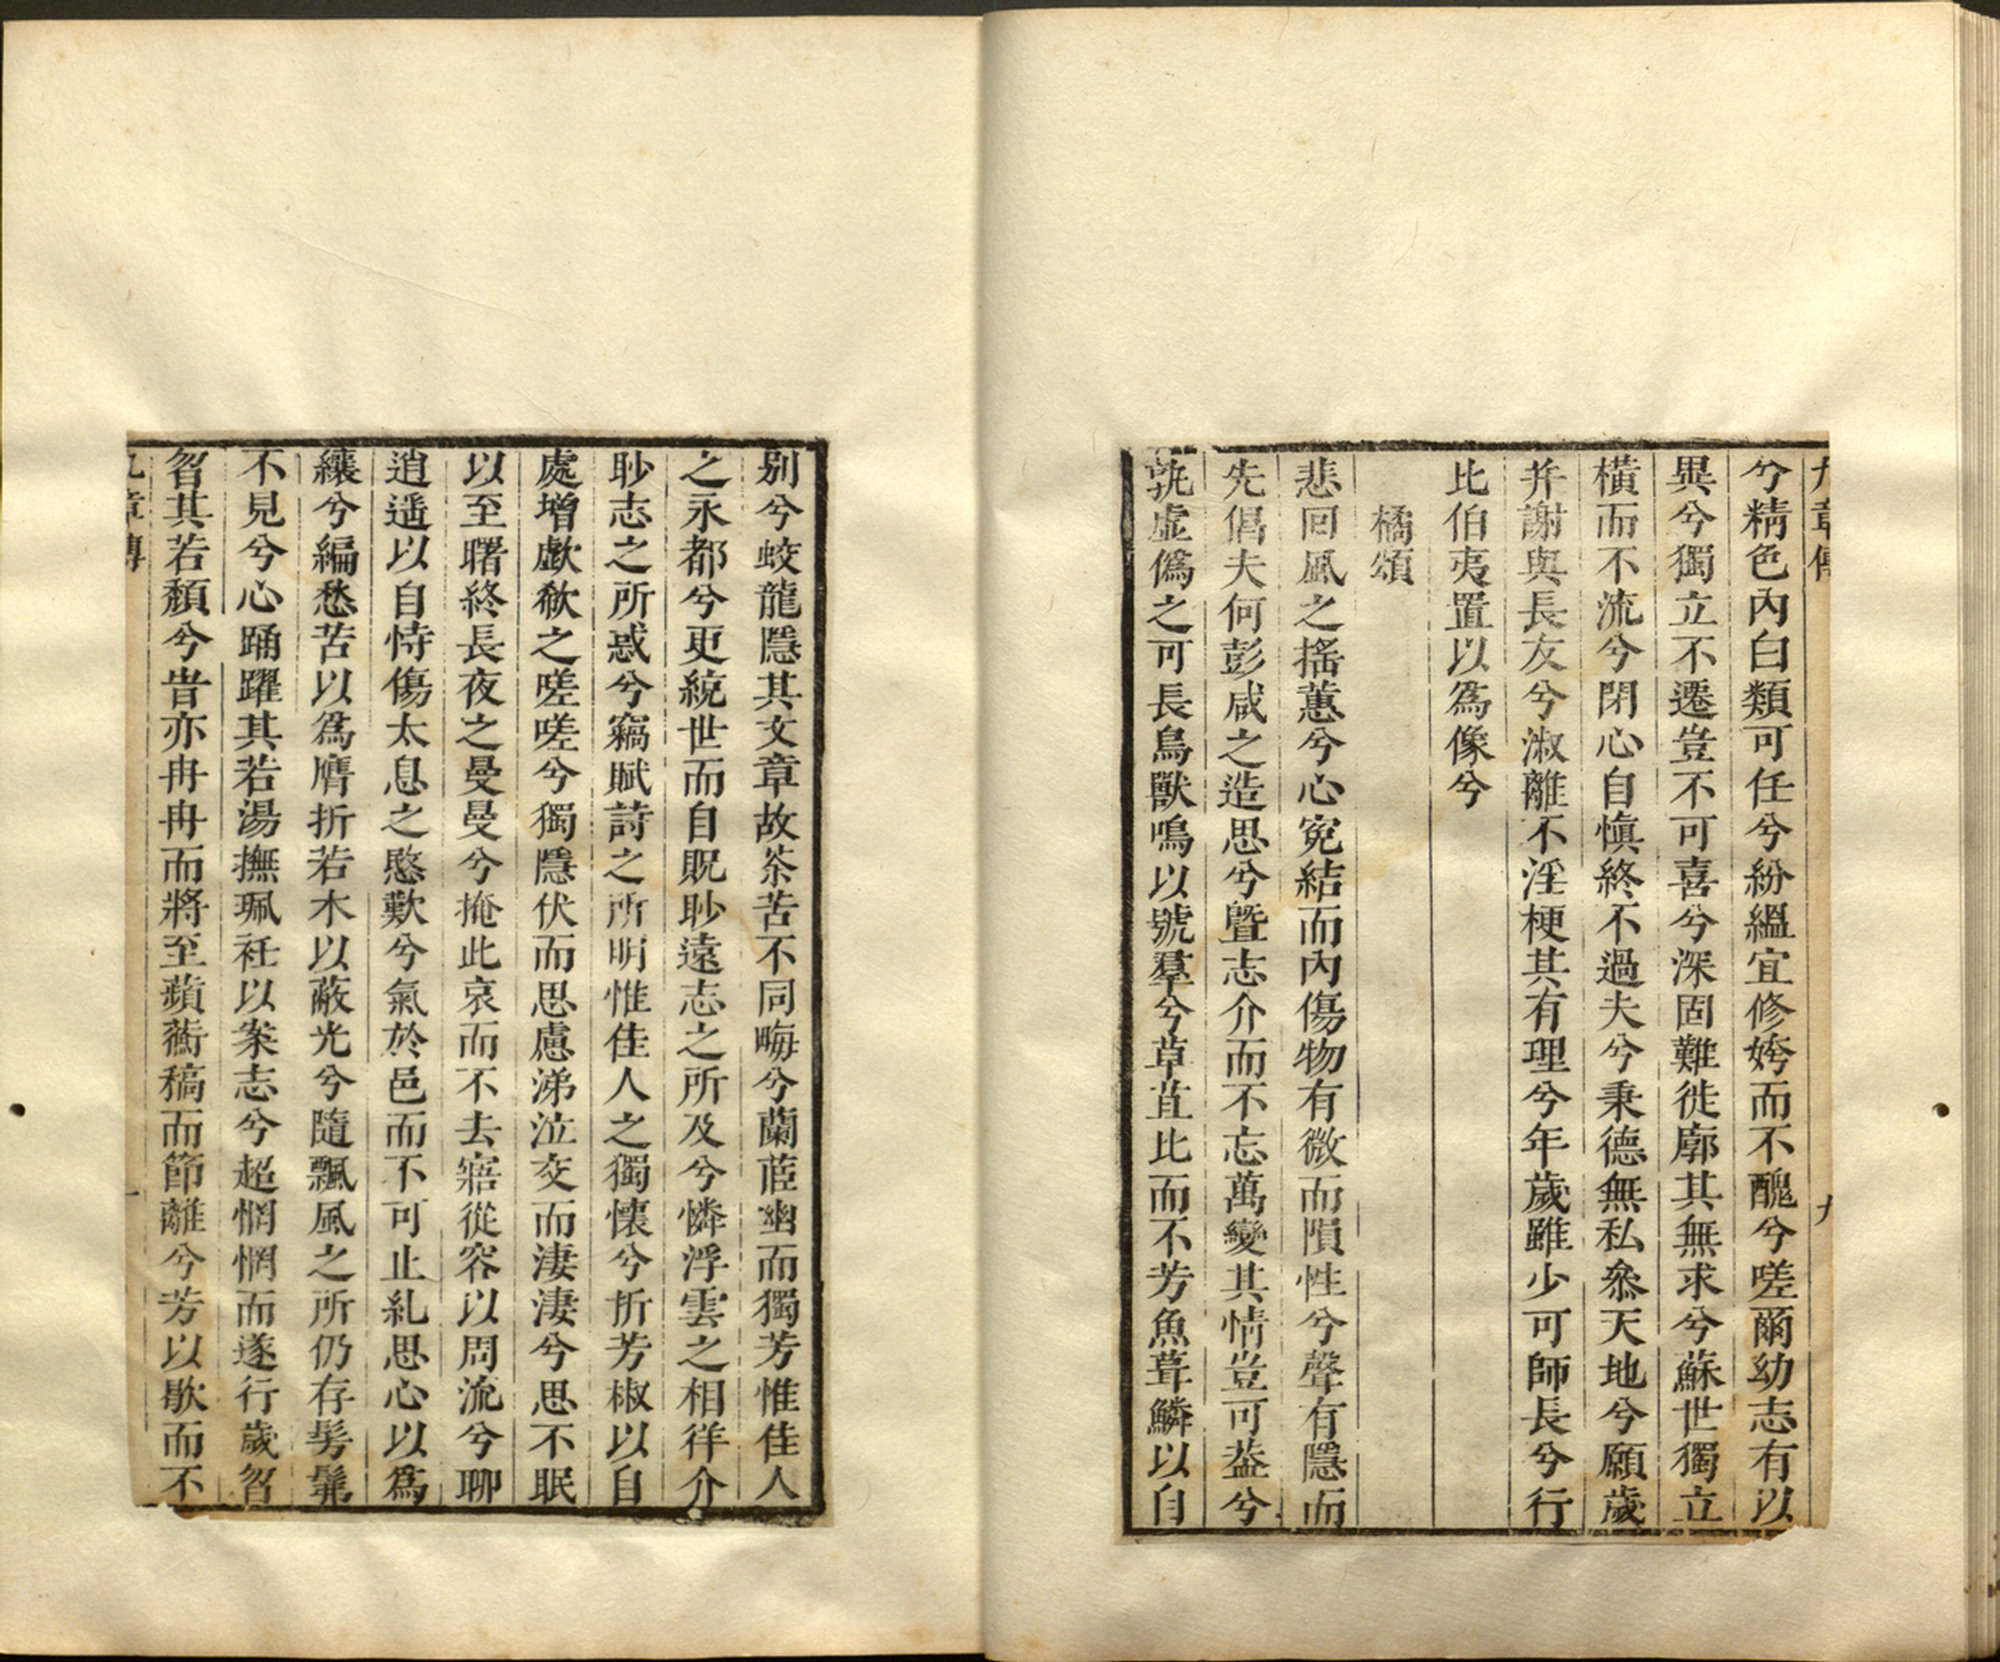 九章傳 九
兮精色內白類可任兮紛縕宜修姱而不醜兮嗟爾幼志有以
異兮獨立不遷豈不可喜兮深固難徙廓其無求兮蘇世獨立
橫而不流兮閉心自慎終不過夫兮秉德無私叅天地兮願歲
并謝與長友兮淑離不淫梗其有理兮年歲雖少可師長兮行
比伯夷置以爲像兮
橘頌
悲回風之搖蕙兮心寃結而內傷物有微而隕性兮聲有隱而
先倡夫何彭咸之造思兮曁志介而不忘萬變其情豈可葢兮
孰虛僞之可長鳥獸鳴以號羣兮草苴比而不芳魚葺鱗以自
别兮蛟龍隱其文章故荼苦不同畮兮蘭茝幽而獨芳惟佳人
之永都兮更統世而自貺眇遠志之所及兮憐浮雲之相徉介
眇志之所惑兮竊賦詩之所明惟佳人之獨懷兮折芳椒以自
處增歔欷之嗟嗟兮獨隱伏而思慮涕泣交而淒淒兮思不眠
以至曙終長夜之曼曼兮掩此哀而不去寤從容以周流兮聊
逍遥以自恃傷太息之愍歎兮氣於邑而不可止糺思心以爲
纕兮編愁苦以爲膺折若木以蔽光兮隨飄風之所仍存髣髴
不見兮心踊躍其若湯撫珮衽以案志兮超惘惘而遂行歲曶
曶其若頹兮旹亦冉冉而將至薠蘅稿而節離兮芳以歇而不
九章傳